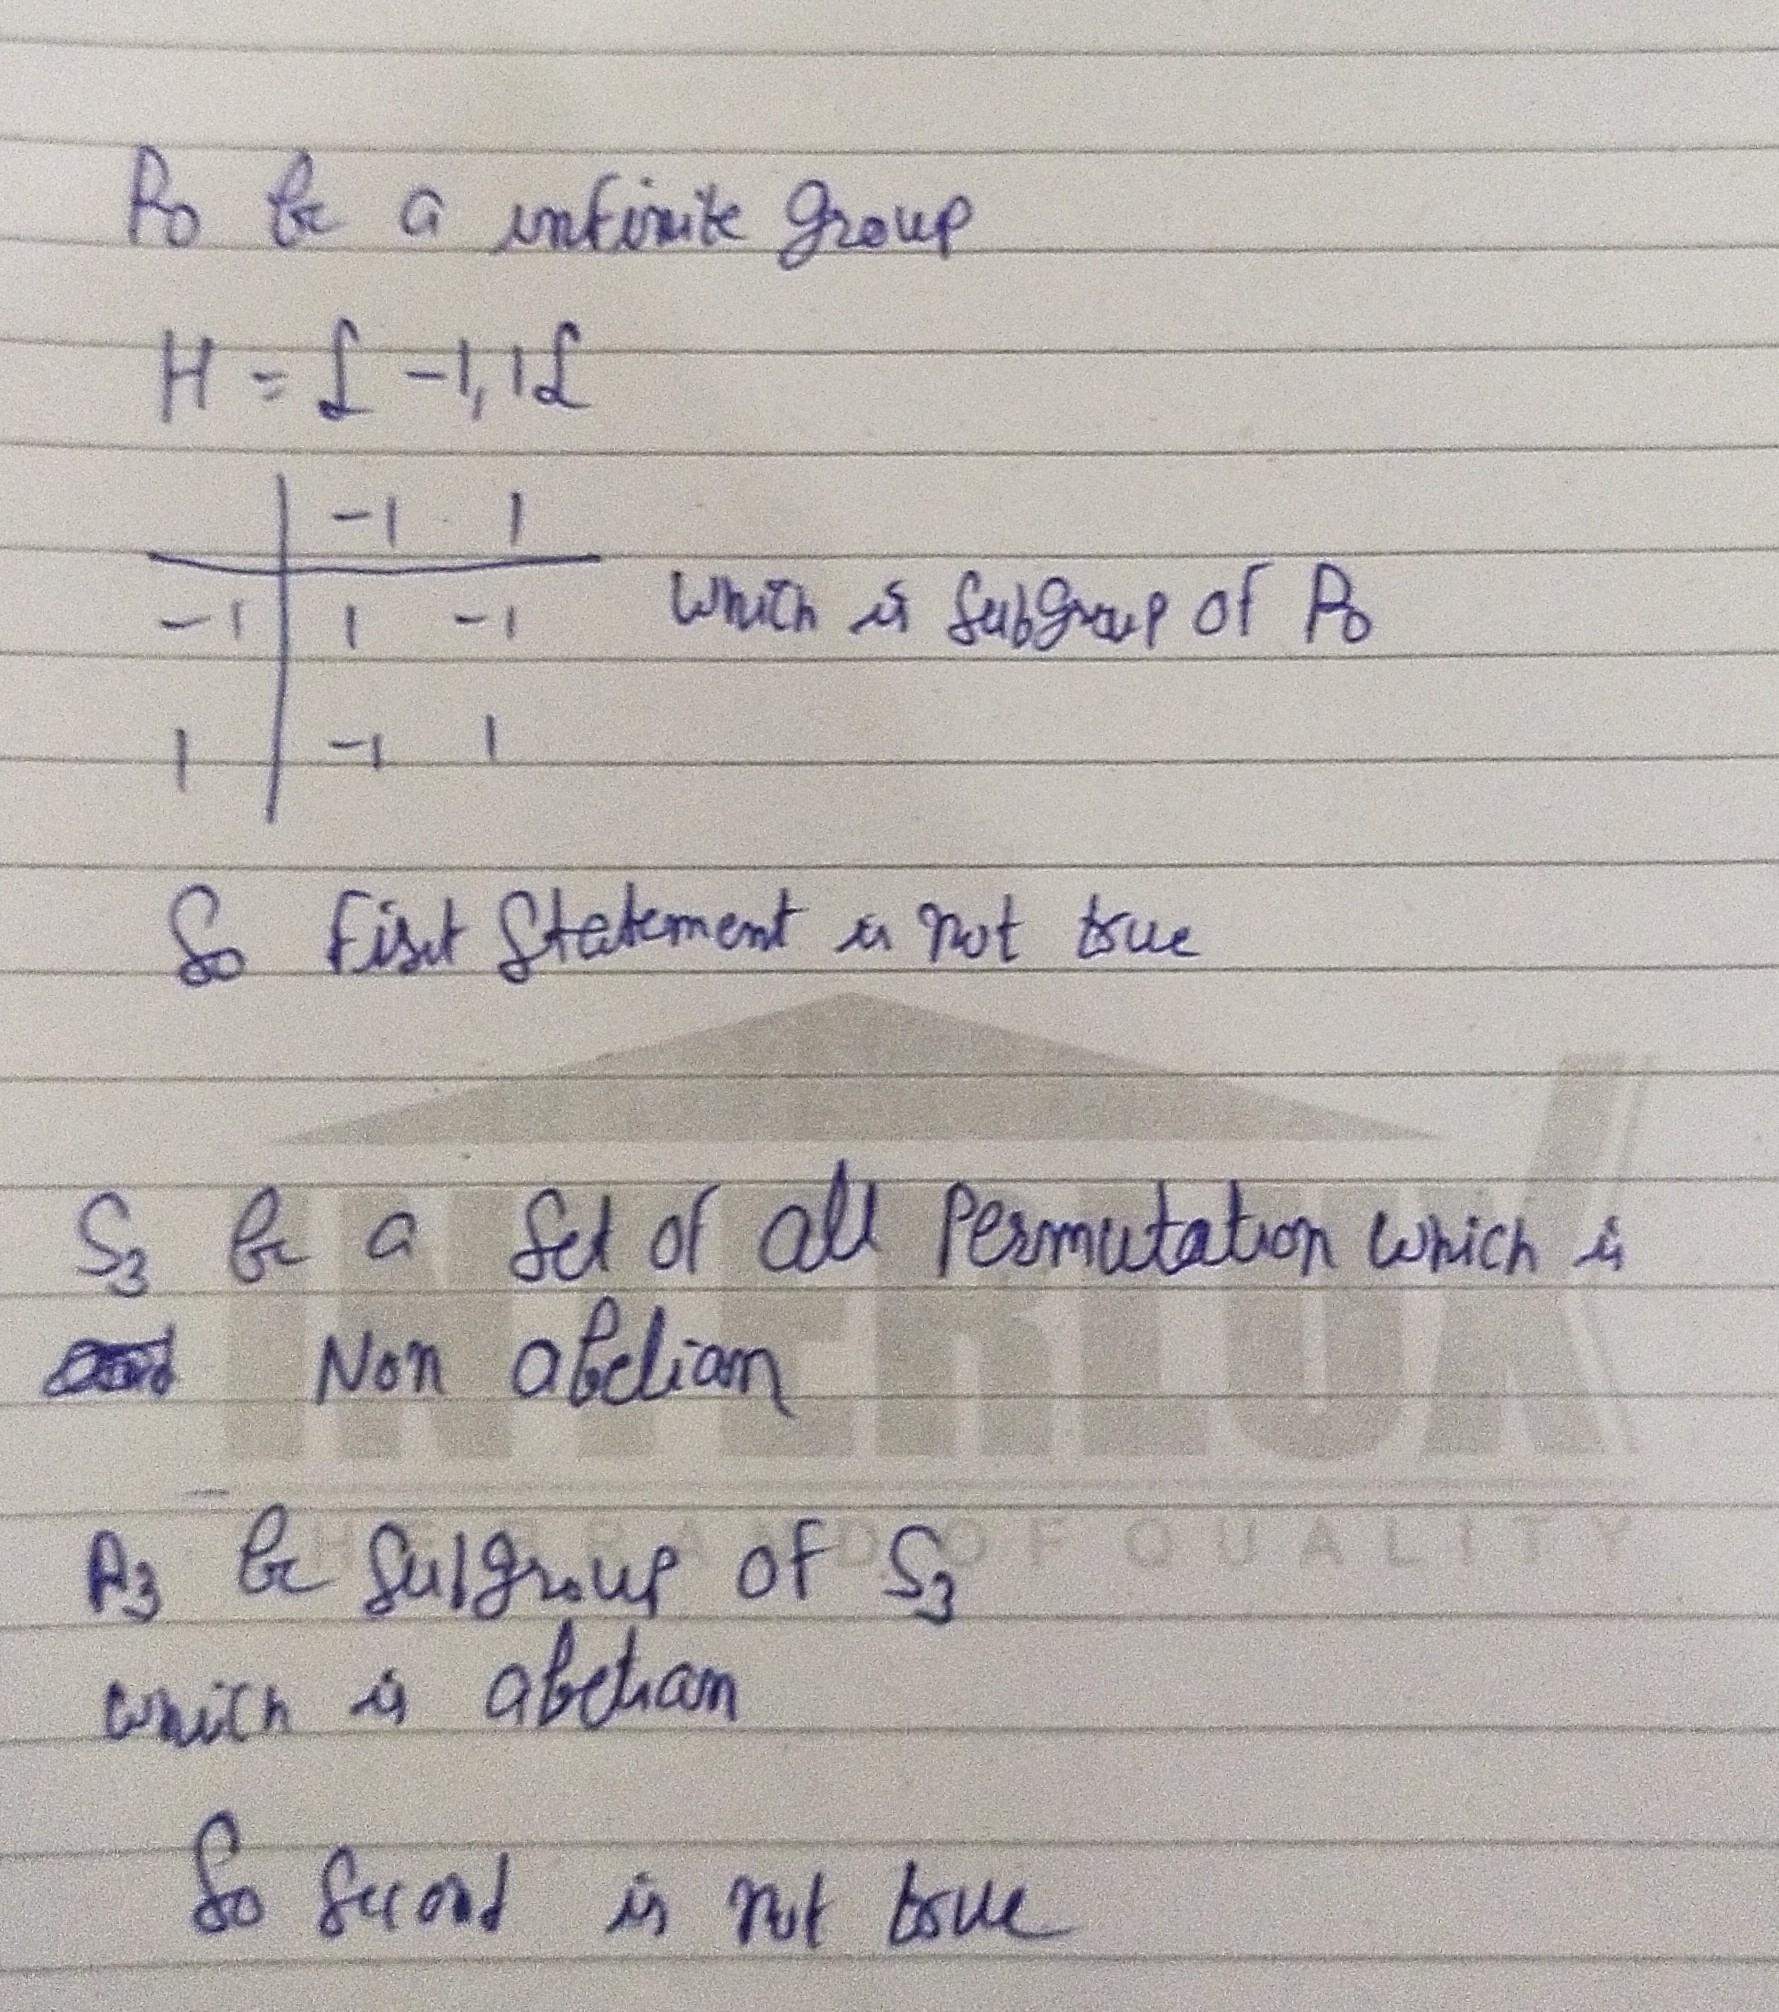 R0 be a infinite group
H = { -1, 1 }
-1 1
-1 1 -1 which is subgroup of R0
1 -1 1
So First Statement is not true
S3 be a Set of all Permutation which is
Non abelian
A3 be Subgroup of S3
which is abelian
So Second is not true
INTERLUX
THE BRAND OF QUALITY